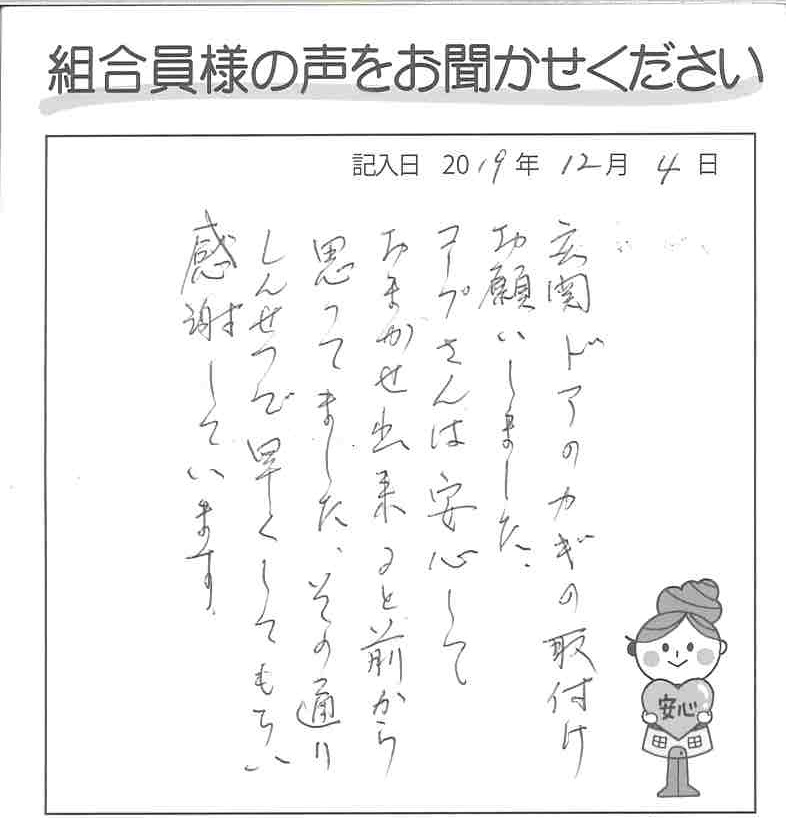 組合員様の声をお聞かせください
記入日 2019年 12月 4日
玄関ドアのカギの取付け
お願いしました。
コープさんは安心して
おまかせ出来ると前から
思ってました、その通り
しんせつで早くしてもらい
感謝しています。
安心